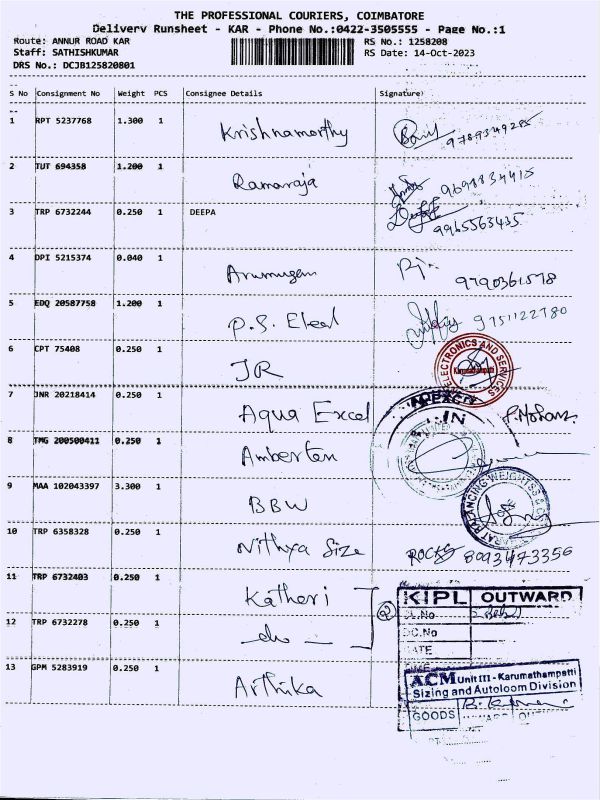 THE PROFESSIONAL COURIERS, COIMBATORE
Delivery Runsheet - KAR - Phone No.:0422-3505555 - Page No.:1
Route: ANNUR ROAD KAR RS No.: 1258208
Staff: SATHISHKUMAR RS Date: 14-Oct-2023
DRS No.: DCJB125820801
S No Consignment No Weight PCS Consignee Details Signature
1 RPT 5237768 1.300 1 Krishnamorthy 9789349285
2 TUT 694358 1.200 1 Ramaraja 9698834415
3 TRP 6732244 0.250 1 DEEPA 9965563435
4 DPI 5215374 0.040 1 Arumugam 9790361578
5 EDQ 20587758 1.200 1 P.S. Elect 9751122780
6 CPT 75408 0.250 1 JR
ELECTRONICS AND SERVICES
Karumathampatti
7 JNR 20218414 0.250 1 Aqua Excel P.Mohan
IN
8 TMG 200500411 0.250 1 Amberten
9 MAA 102043397 3.300 1 BBW
BALANCING WEIGHTSS
10 TRP 6358328 0.250 1 Nithya Size ROCKS 8093473356
11 TRP 6732403 0.250 1 Katheri 2
KIPL OUTWARD
12 TRP 6732278 0.250 1 do
13 GPM 5283919 0.250 1 Arthika
ACM Unit III - Karumathampatti
Sizing and Autoloom Division
GOODS